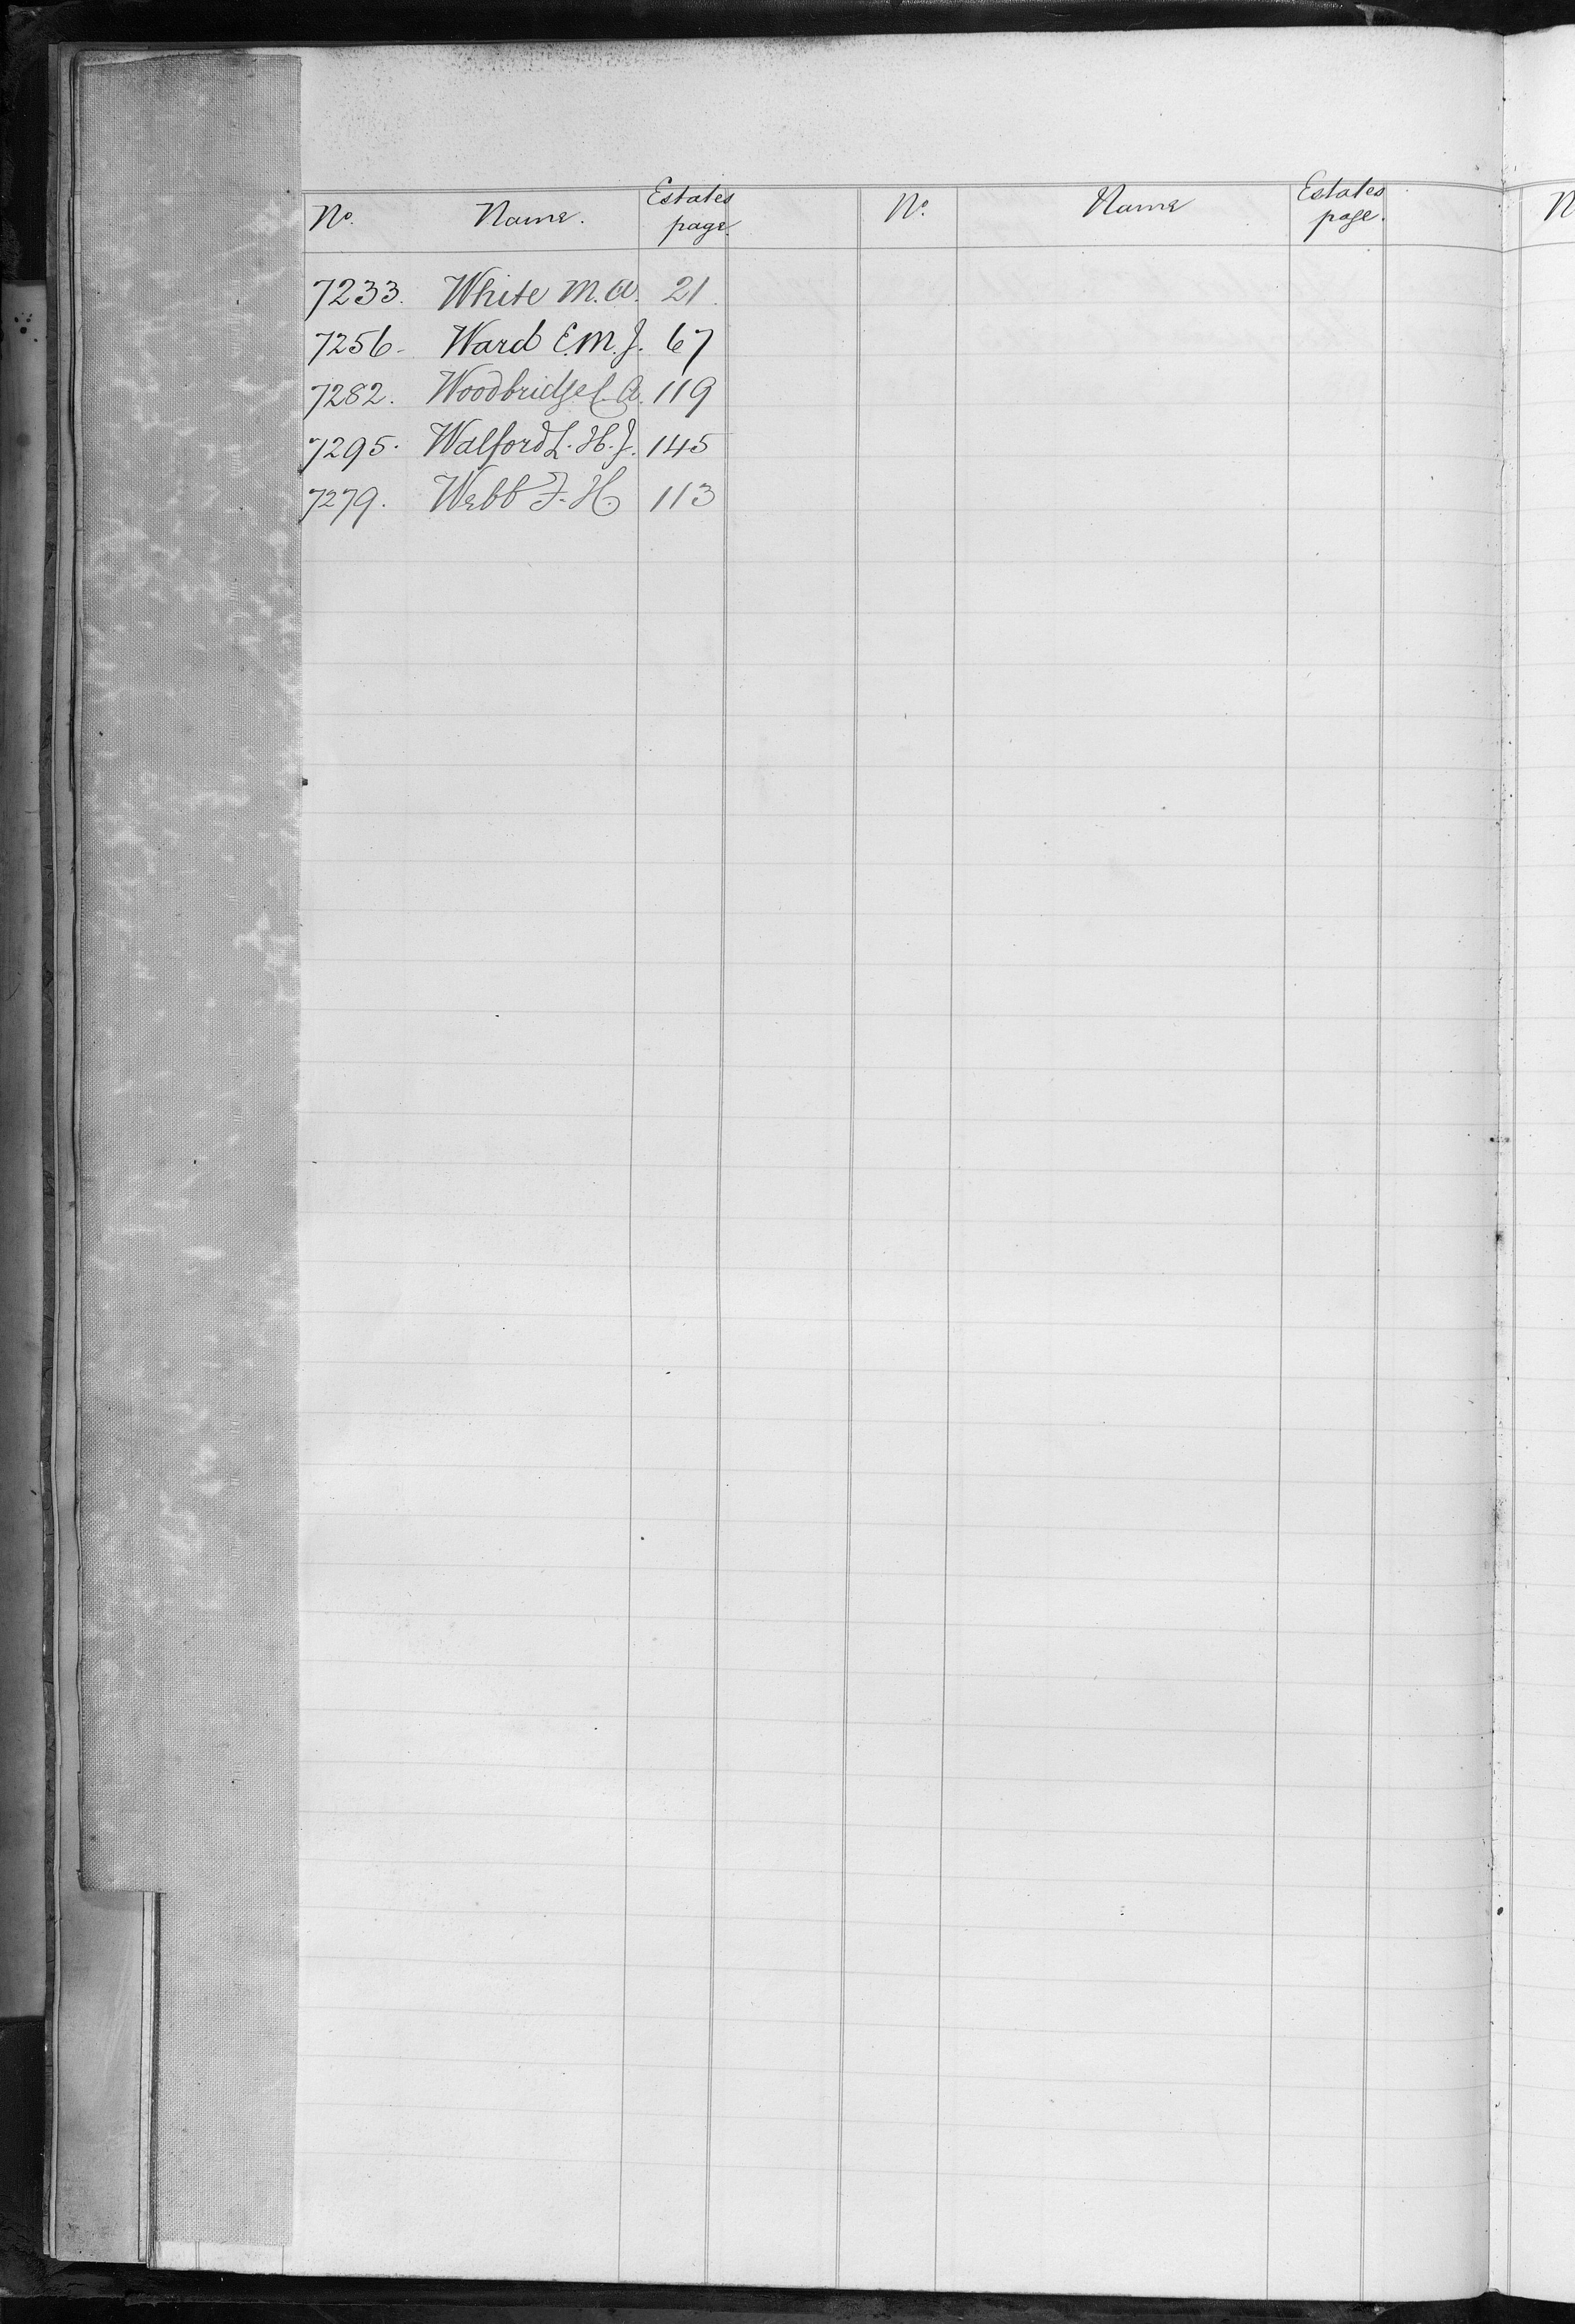 No. Name. Estates page. No. Name Estates page.
7233. White M. A. 21.
7256- Ward E. M. J. 67
7282. Woodbridge C. A. 119
7295. Walford L. H. J. 145
7279. Webb F. H. 113